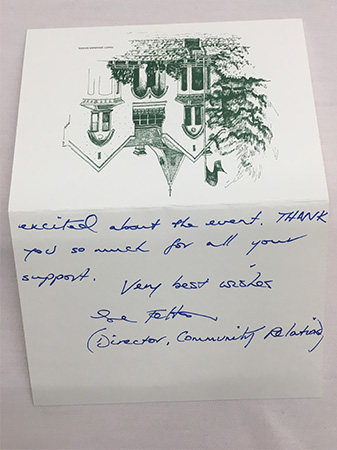 excited about the event. THANK
you so much for all your
support. Very best wishes
(Director, Community Relations)